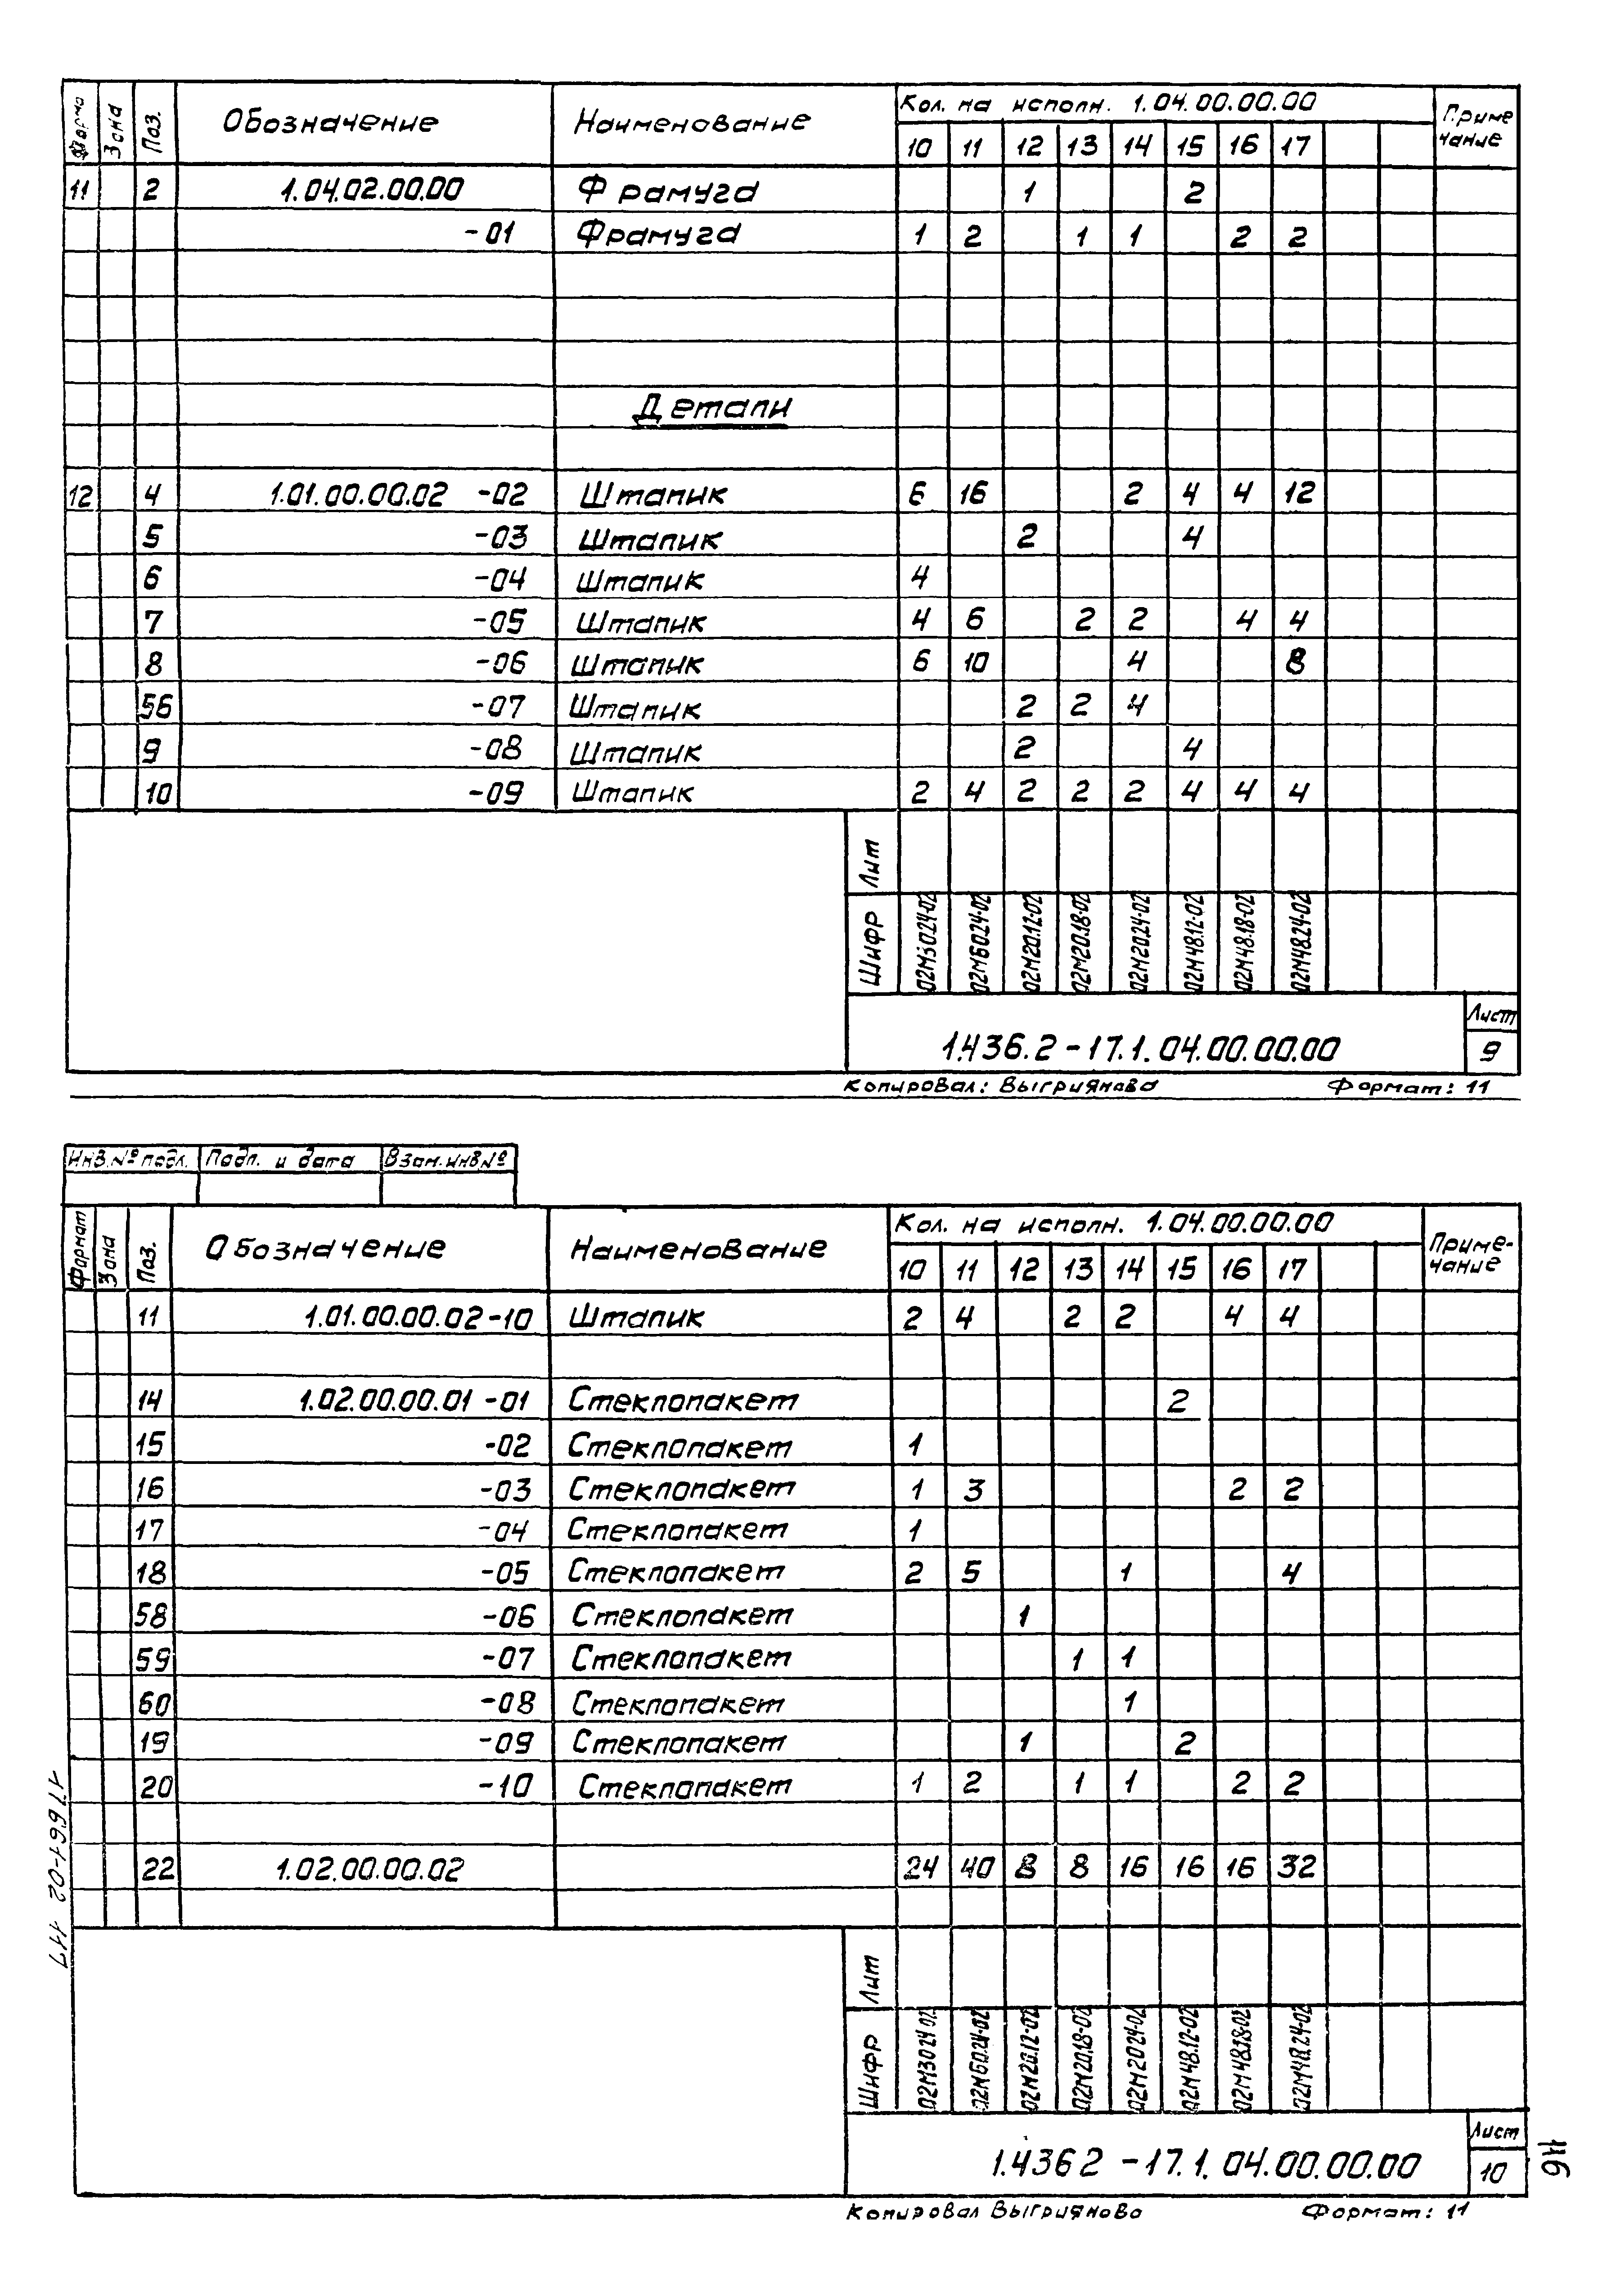 Формат Зона Поз. Обозначение Наименование Кол. на исполн. 1.04.00.00.00 Приме чание
10 11 12 13 14 15 16 17
11 2 1.04.02.00.00 Фрамуга 1 2
-01 Фрамуга 1 2 1 1 2 2
Детали
12 4 1.01.00.00.02 -02 Штапик 6 16 2 4 4 12
5 -03 Штапик 2 4
6 -04 Штапик 4
7 -05 Штапик 4 6 2 2 4 4
8 -06 Штапик 6 10 4 8
56 -07 Штапик 2 2 4
9 -08 Штапик 2 4
10 -09 Штапик 2 4 2 2 2 4 4 4
Лит
Шифр 02М3024-02 02М60.24-02 02М20.12-02 02М20.18-02 02М20.24-02 02М48.12-02 02М48.18-02 02М48.24-02
1.436.2-17.1.04.00.00.00 Лист
9
Копировал: Выгриянова Формат: 11
Инв.№ подл. Подп. и дата Взам.инв.№
Формат Зона Поз. Обозначение Наименование Кол. на исполн. 1.04.00.00.00 Приме-чание
10 11 12 13 14 15 16 17
11 1.01.00.00.02-10 Штапик 2 4 2 2 4 4
14 1.02.00.00.01 -01 Стеклопакет 2
15 -02 Стеклопакет 1
16 -03 Стеклопакет 1 3 2 2
17 -04 Стеклопакет 1
18 -05 Стеклопакет 2 5 1 4
58 -06 Стеклопакет 1
59 -07 Стеклопакет 1 1
60 -08 Стеклопакет 1
19 -09 Стеклопакет 1 2
20 -10 Стеклопакет 1 2 1 1 2 2
22 1.02.00.00.02 24 40 8 8 16 16 16 32
Лит
Шифр 02М3024 02 02М60.24-02 02М20.12-02 02М20.18-02 02М2024-02 02М48.12-02 02М48.18-02 02М48.24-02
1.4362-17.1.04.00.00.00 Лист
10
Копировал Выгриянова Формат: 11
17661-02 117
116